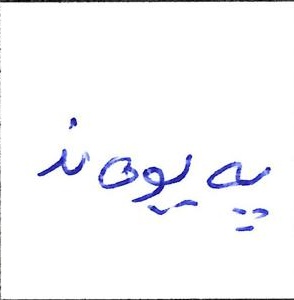 پەیوەند